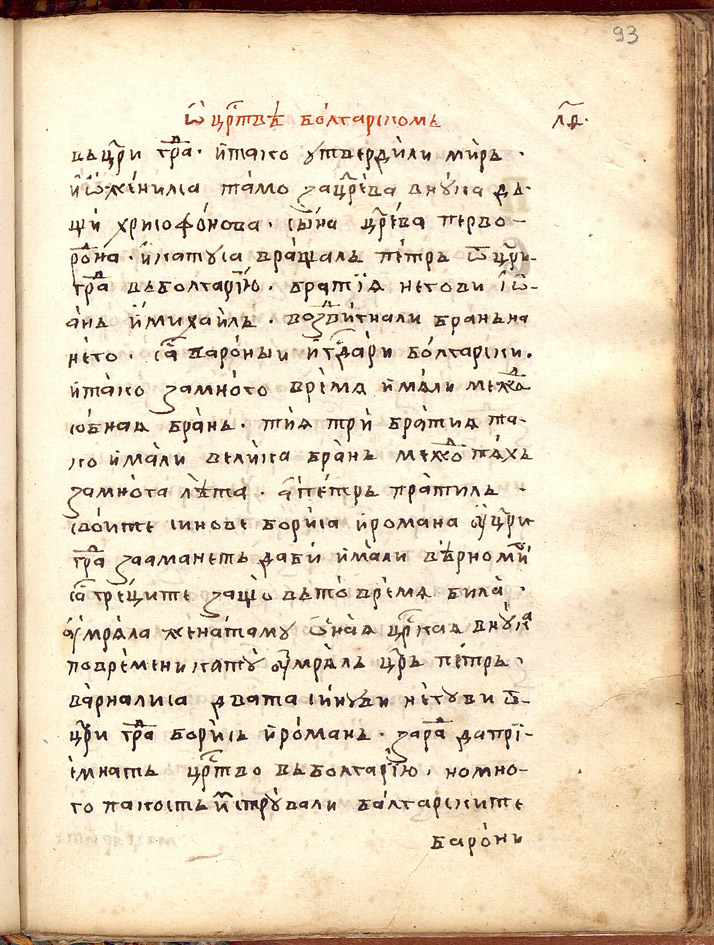 93
Ѿ црⷭ҇твѣ бо́лгарскомъ л҃д.
въцр҃и граⷣ. и҆тако утверди́ли ми́ръ .
и҆ѡ҆женилиса тамо зацр҃ева внука дъ-
щи́ христофо́нова. сы́на цр҃ева перво-
роⷣна. и҆катуса вращалъ пе́тръ ѿ цр҃и
граⷣ въболгарі́ю. братїѧ негови іѡ-
анъ и҆михаилъ. возⷣви́гнали браньна
него. саⷭ баро́ныи и҆гдⷭари бо́лгарски.
и҆тако замно́го вре́мѧ и҆мѧли межⷣꙋ
собнаѧ бра́нъ. ти́ѧ три́ бра́тиѧ та-
ко и҆ма́ли вели́ка бра́нъ межⷣо тѧ́хъ
замно́га лѣта. а҆пе́тръ прати́лъ
сво́ите синове бори́са и҆романа ꙋ҆цр҃и
граⷣ зааманетъ даби и҆ма́ли вѣ́рномиⷬ
саⷭ гре́ците защо́ вьто́ вре́мѧ била̀.
ꙋ҆мрѧла жена́таму ѡ҆наѧ црⷭ҇каѧ вну́каⷦ
повре́мени кату̀ ꙋ҆мрѧ́лъ цр҃ъ пе́тръ.
ва́рналиса двата си́нуви негуви ѿ
цр҃и граⷣ бори́съ и҆ро́манъ. зараⷣ дапрі́-
емнатъ црⷭ҇тво въболгарі́ю. номно-
го пакостъ и҆мⷨ стру́вали ба́лгарските
баро́ни